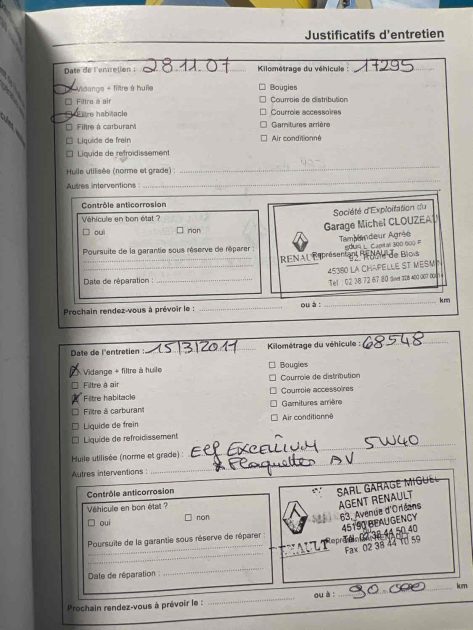 Justificatifs d'entretien
Date de l'entretien : 28.11.07 Kilométrage du véhicule : 17295
Vidange + filtre à huile
Filtre à air
Filtre habitacle
Filtre à carburant
Liquide de frein
Liquide de refroidissement
Bougies
Courroie de distribution
Courroie accessoires
Garnitures arrière
Air conditionné
Huile utilisée (norme et grade) :
Autres interventions :
Contrôle anticorrosion
Véhicule en bon état ?
oui non
Poursuite de la garantie sous réserve de réparer :
Date de réparation :
Société d'Exploitation du
Garage Michel CLOUZEAU
Agréé
RENAULT
Représentant RENAULT
de Blois
45380 LA CHAPELLE ST MESMIN
Tel : 02 38 72 67 80
Prochain rendez-vous à prévoir le : ou à : km
Date de l'entretien : 15/3/2011 Kilométrage du véhicule : 68548
Vidange + filtre à huile
Filtre à air
Filtre habitacle
Filtre à carburant
Liquide de frein
Liquide de refroidissement
Bougies
Courroie de distribution
Courroie accessoires
Garnitures arrière
Air conditionné
Huile utilisée (norme et grade) : Elf EXCELLIUM 5W40
Autres interventions : x Plaquettes AV
Contrôle anticorrosion
Véhicule en bon état ?
oui non
Poursuite de la garantie sous réserve de réparer :
Date de réparation :
SARL GARAGE MIGUEL
AGENT RENAULT
63, Avenue d'Orléans
45190 BEAUGENCY
Tél. 02 38 44 50 40
Fax 02 38 44 10 59
Prochain rendez-vous à prévoir le : ou à : 90.000 km